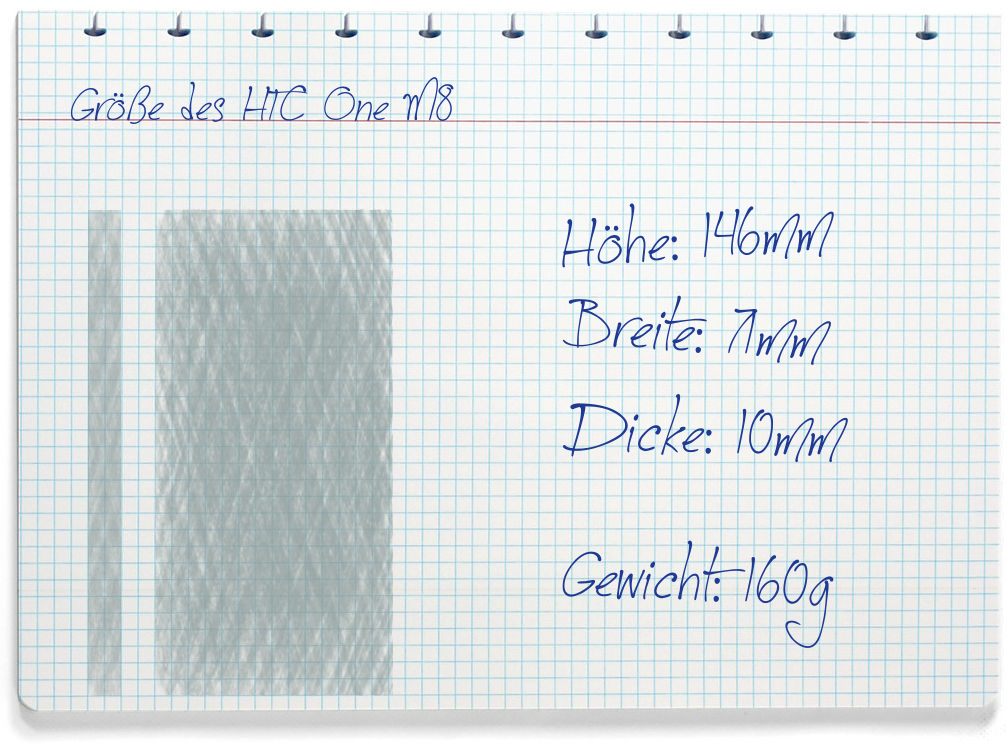 Größe des HTC One M8
Höhe: 146mm
Breite: 71mm
Dicke: 10mm
Gewicht: 160g